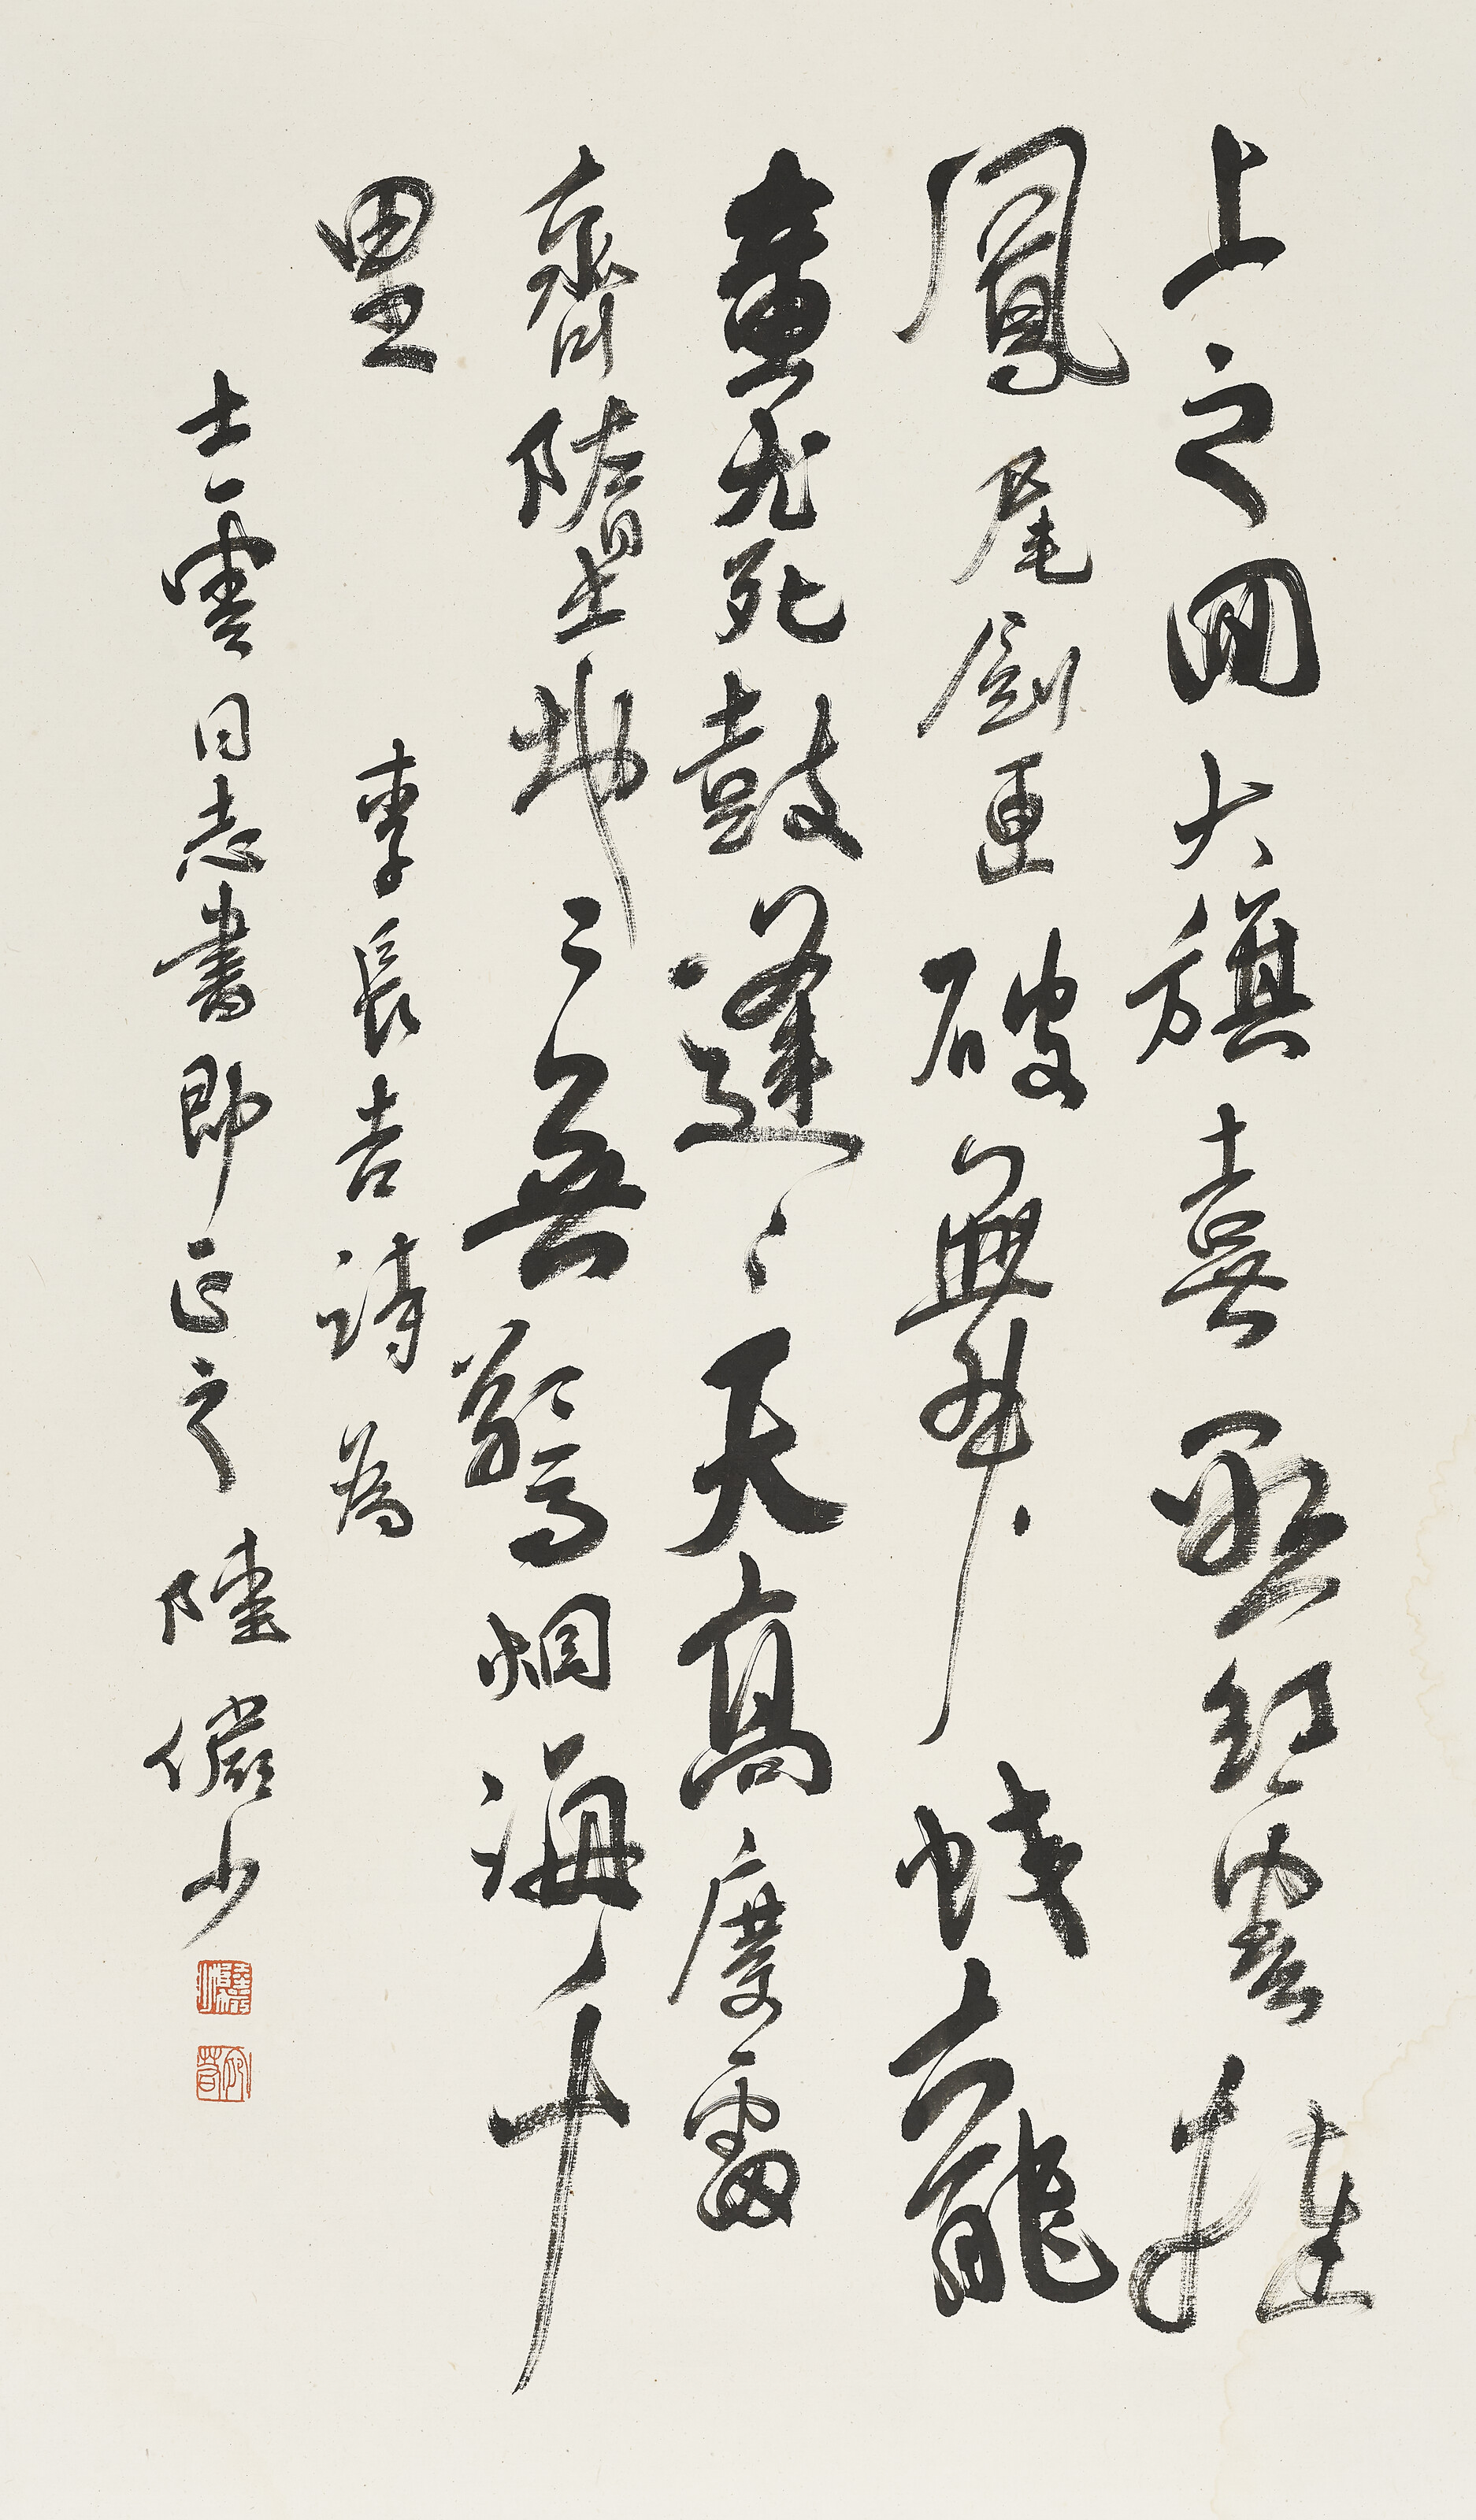 上之回大旗喜懸紅雲撻
鳳尾劍匣破舞蛟龍
蚩尤死鼓逢〻天高慶雷
齊墮地〻無驚烟海千
里
李長吉詩為
士雲同志書即正之 陸儼少